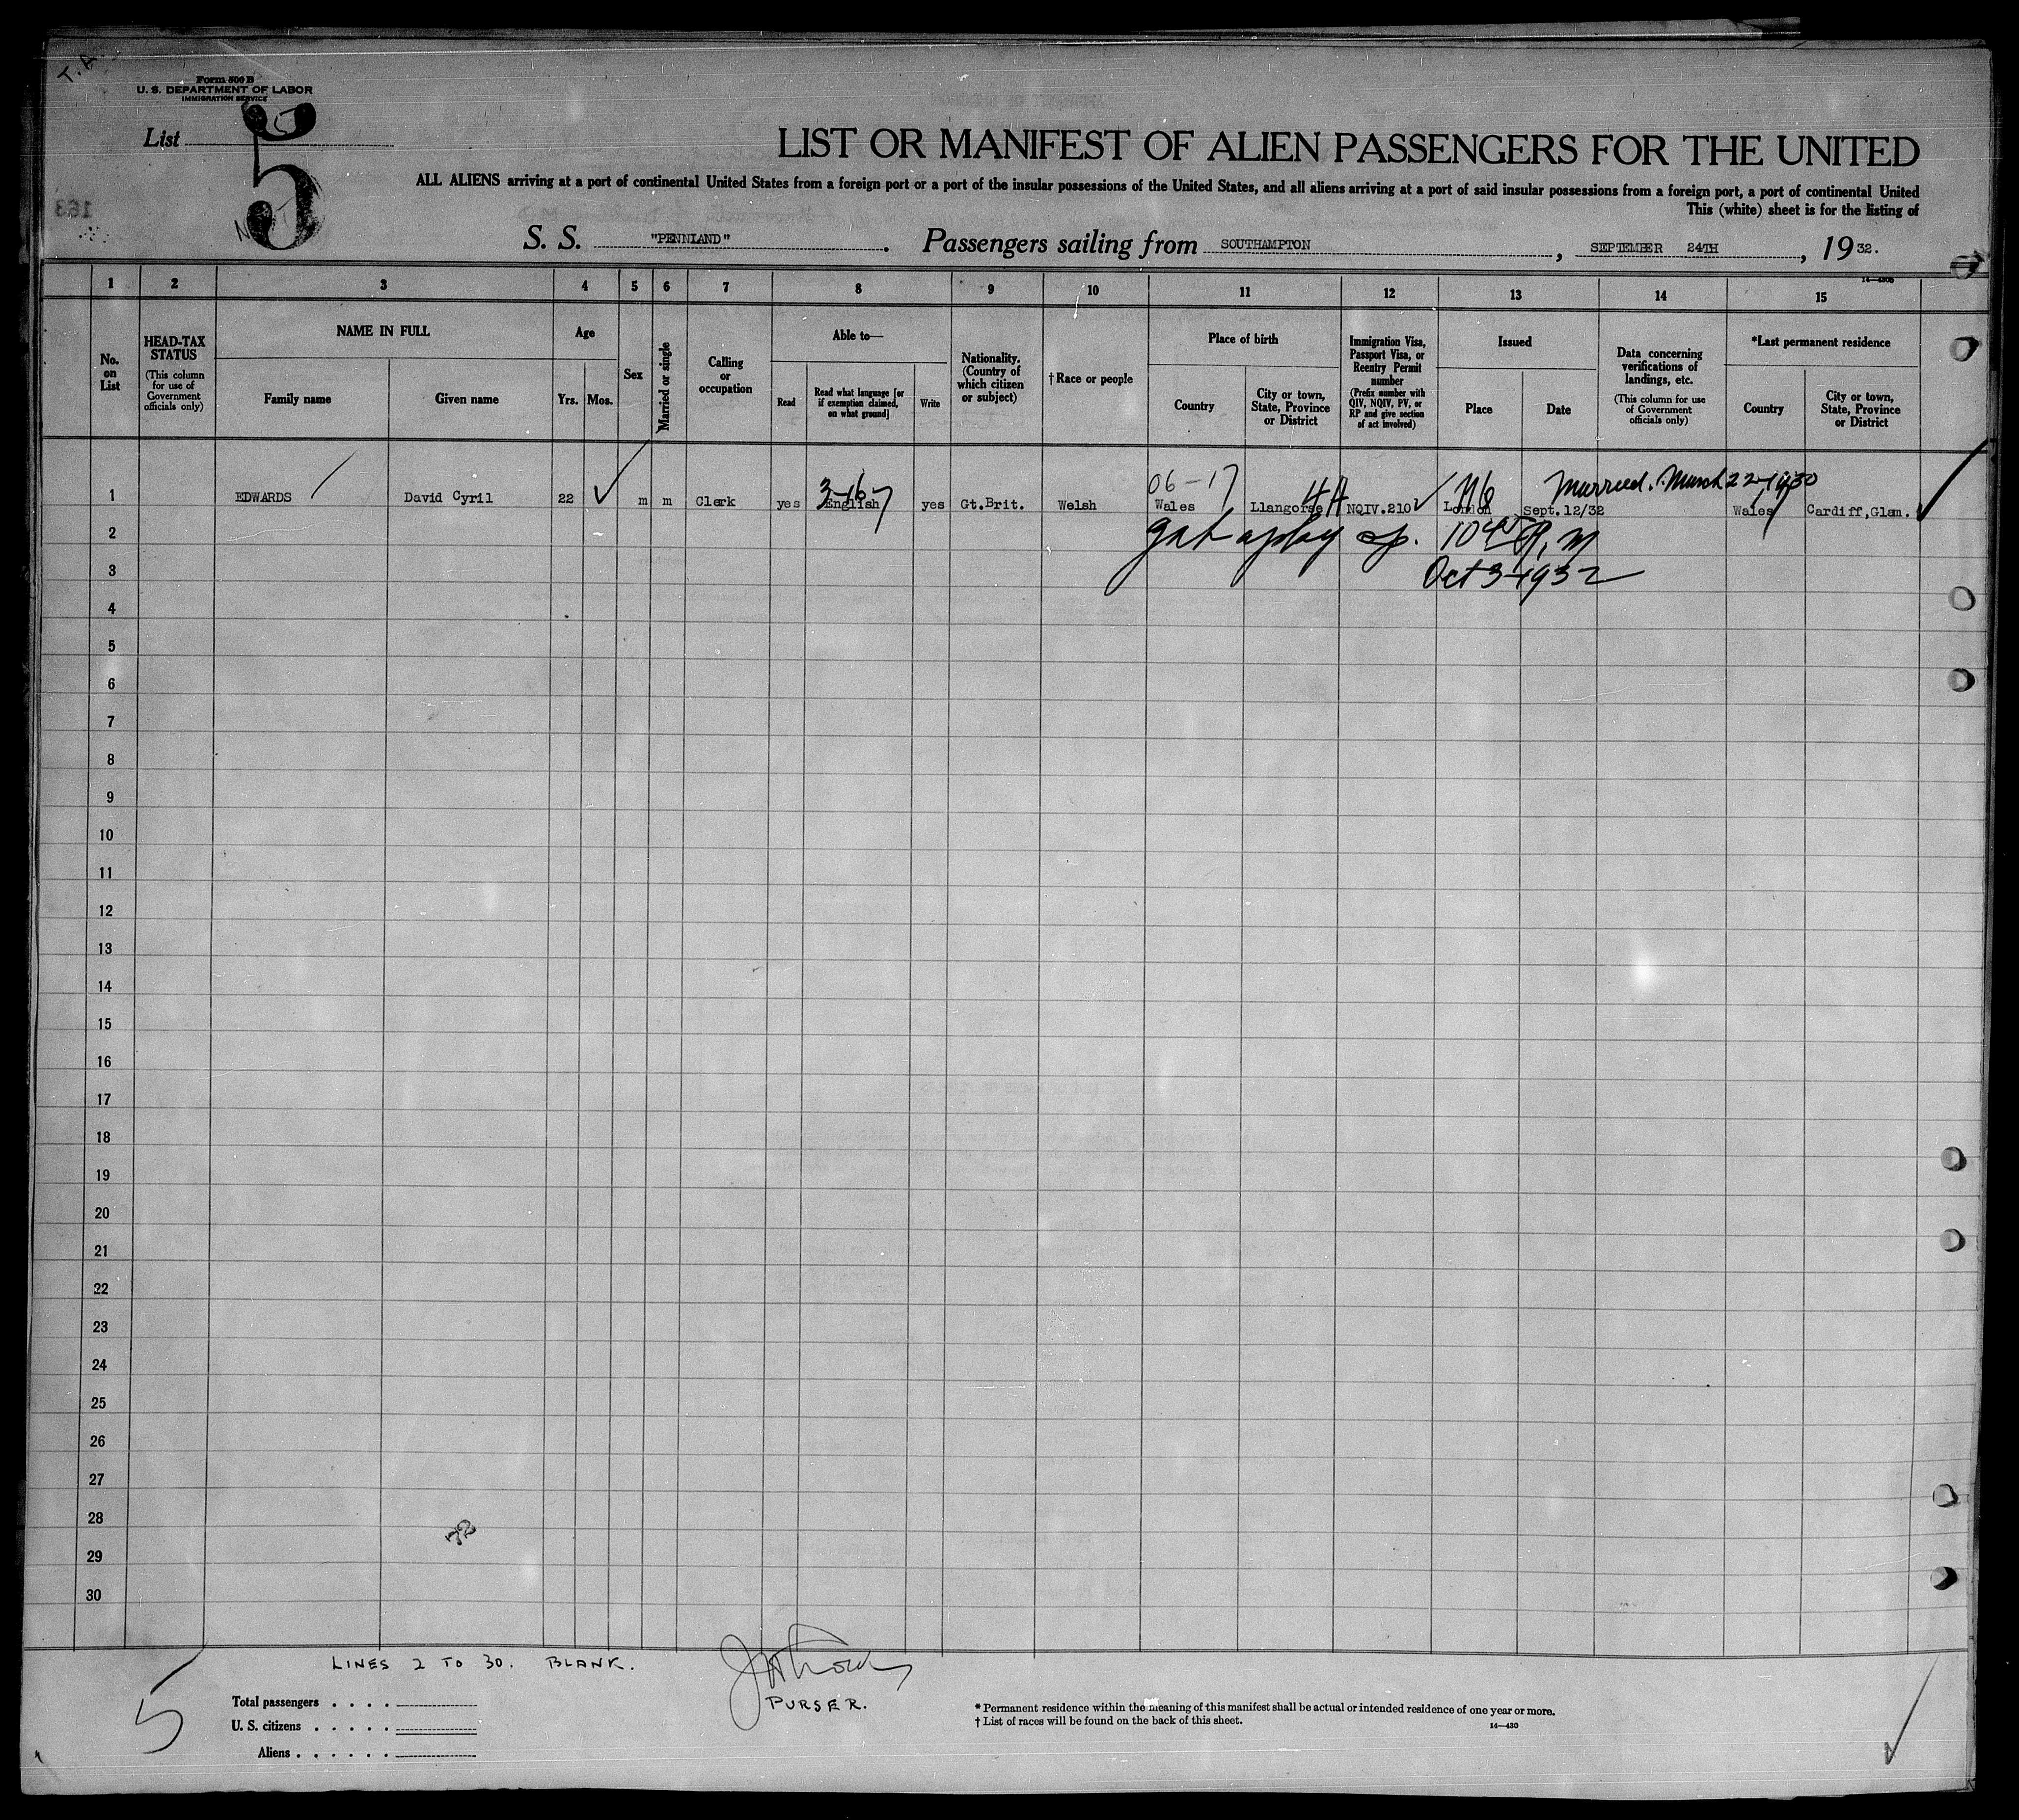 T. A.
Form 500 B
U. S. DEPARTMENT OF LABOR
IMMIGRATION SERVICE
List 5
163
LIST OR MANIFEST OF ALIEN PASSENGERS FOR THE UNITED
ALL ALIENS arriving at a port of continental United States from a foreign port or a port of the insular possessions of the United States, and all aliens arriving at a port of said insular possessions from a foreign port, a port of continental United
This (white) sheet is for the listing of
S. S. "PENNLAND". Passengers sailing from SOUTHAMPTON, SEPTEMBER 24TH, 1932.
14—430B
1 2 3 4 5 6 7 8 9 10 11 12 13 14 15
No. on List
HEAD-TAX STATUS (This column for use of Government officials only)
NAME IN FULL
Family name
Given name
Age
Yrs.
Mos.
Sex
Married or single
Calling or occupation
Able to—
Read
Read what language [or if exemption claimed, on what ground]
Write
Nationality. (Country of which citizen or subject)
† Race or people
Place of birth
Country
City or town, State, Province or District
Immigration Visa, Passport Visa, or Reentry Permit number (Prefix number with QIV, NQIV, PV, or RP and give section of act involved)
Issued
Place
Date
Data concerning verifications of landings, etc. (This column for use of Government officials only)
*Last permanent residence
Country
City or town, State, Province or District
3-167 06-17 4A Married March 22-1930
1 EDWARDS David Cyril 22 m m Clerk yes English yes Gt.Brit. Welsh Wales Llangorse NQIV.210 London Sept.12/32 Wales Cardiff,Glam.
2
3 Oct 3-1932
4
5
6
7
8
9
10
11
12
13
14
15
16
17
18
19
20
21
22
23
24
25
26
27
28
29
30
LINES 2 TO 30. BLANK.
PURSER.
5
Total passengers . . . .
U. S. citizens . . . . .
Aliens . . . . . .
* Permanent residence within the meaning of this manifest shall be actual or intended residence of one year or more.
† List of races will be found on the back of this sheet.
14—430